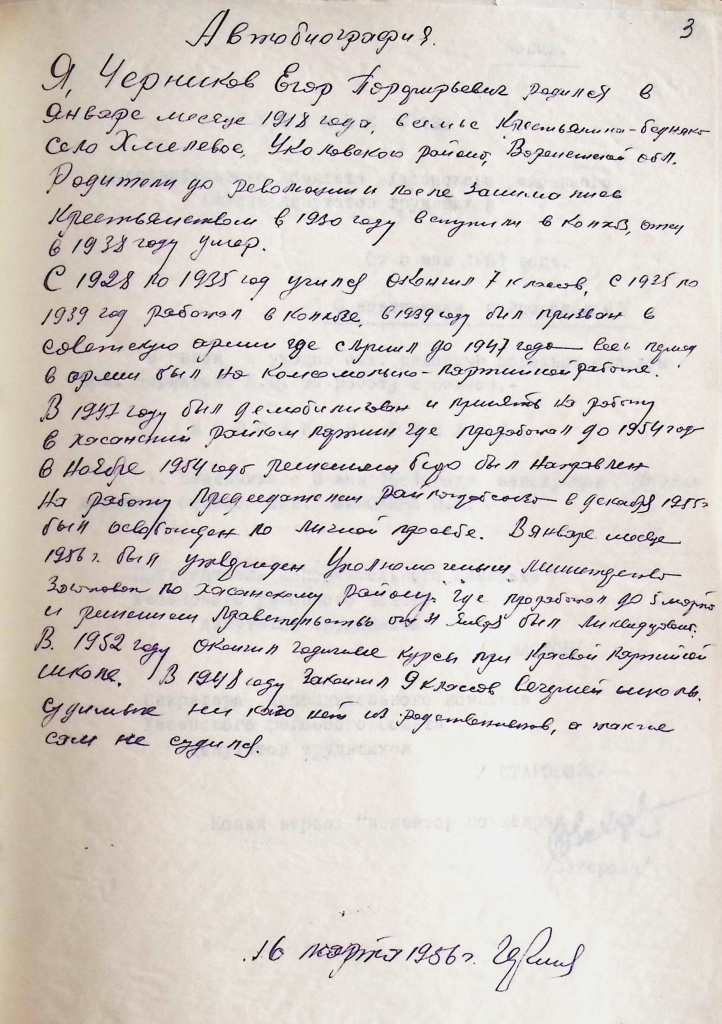 3
Автобиография.
Я, Черников Егор Порфирьевич родился в
январе месяце 1918 года, в семье Крестьянина-бедняка
село Хмелевое, Уколовского района, Воронежской обл.
Родители до революции и после занимались
Крестьянством в 1930 году вступили в колхоз, отец
в 1938 году умер.
С 1928 по 1935 год учился окончил 7 классов, с 1935 по
1939 год работал в колхозе, в 1939 году был призван в
советскую армию где служил до 1947 года весь период
в армии был на Комсомольско-партийной работе.
В 1947 году был демобилизован и принять на работу
в Хасанский райком партии где проработал до 1954 год
в ноябре 1954 года решением бюро был направлен
на работу Председателем в декабре 1955 г
был освобожден по личной просьбе. В январе месяце
1956 г. был утвержден Уполномоченным Министерство
Заготовок по Хасанскому району, где проработал до 5 марта
и решением Правительства от 31 января был ликвидирован.
В. 1952 году окончил годичные курсы при Краевой партийной
школе. В 1948 году закончил 9 классов вечерней школы.
Судимых ни кого нет из родственников, а также
сам не судился.
16 марта 1956 г.